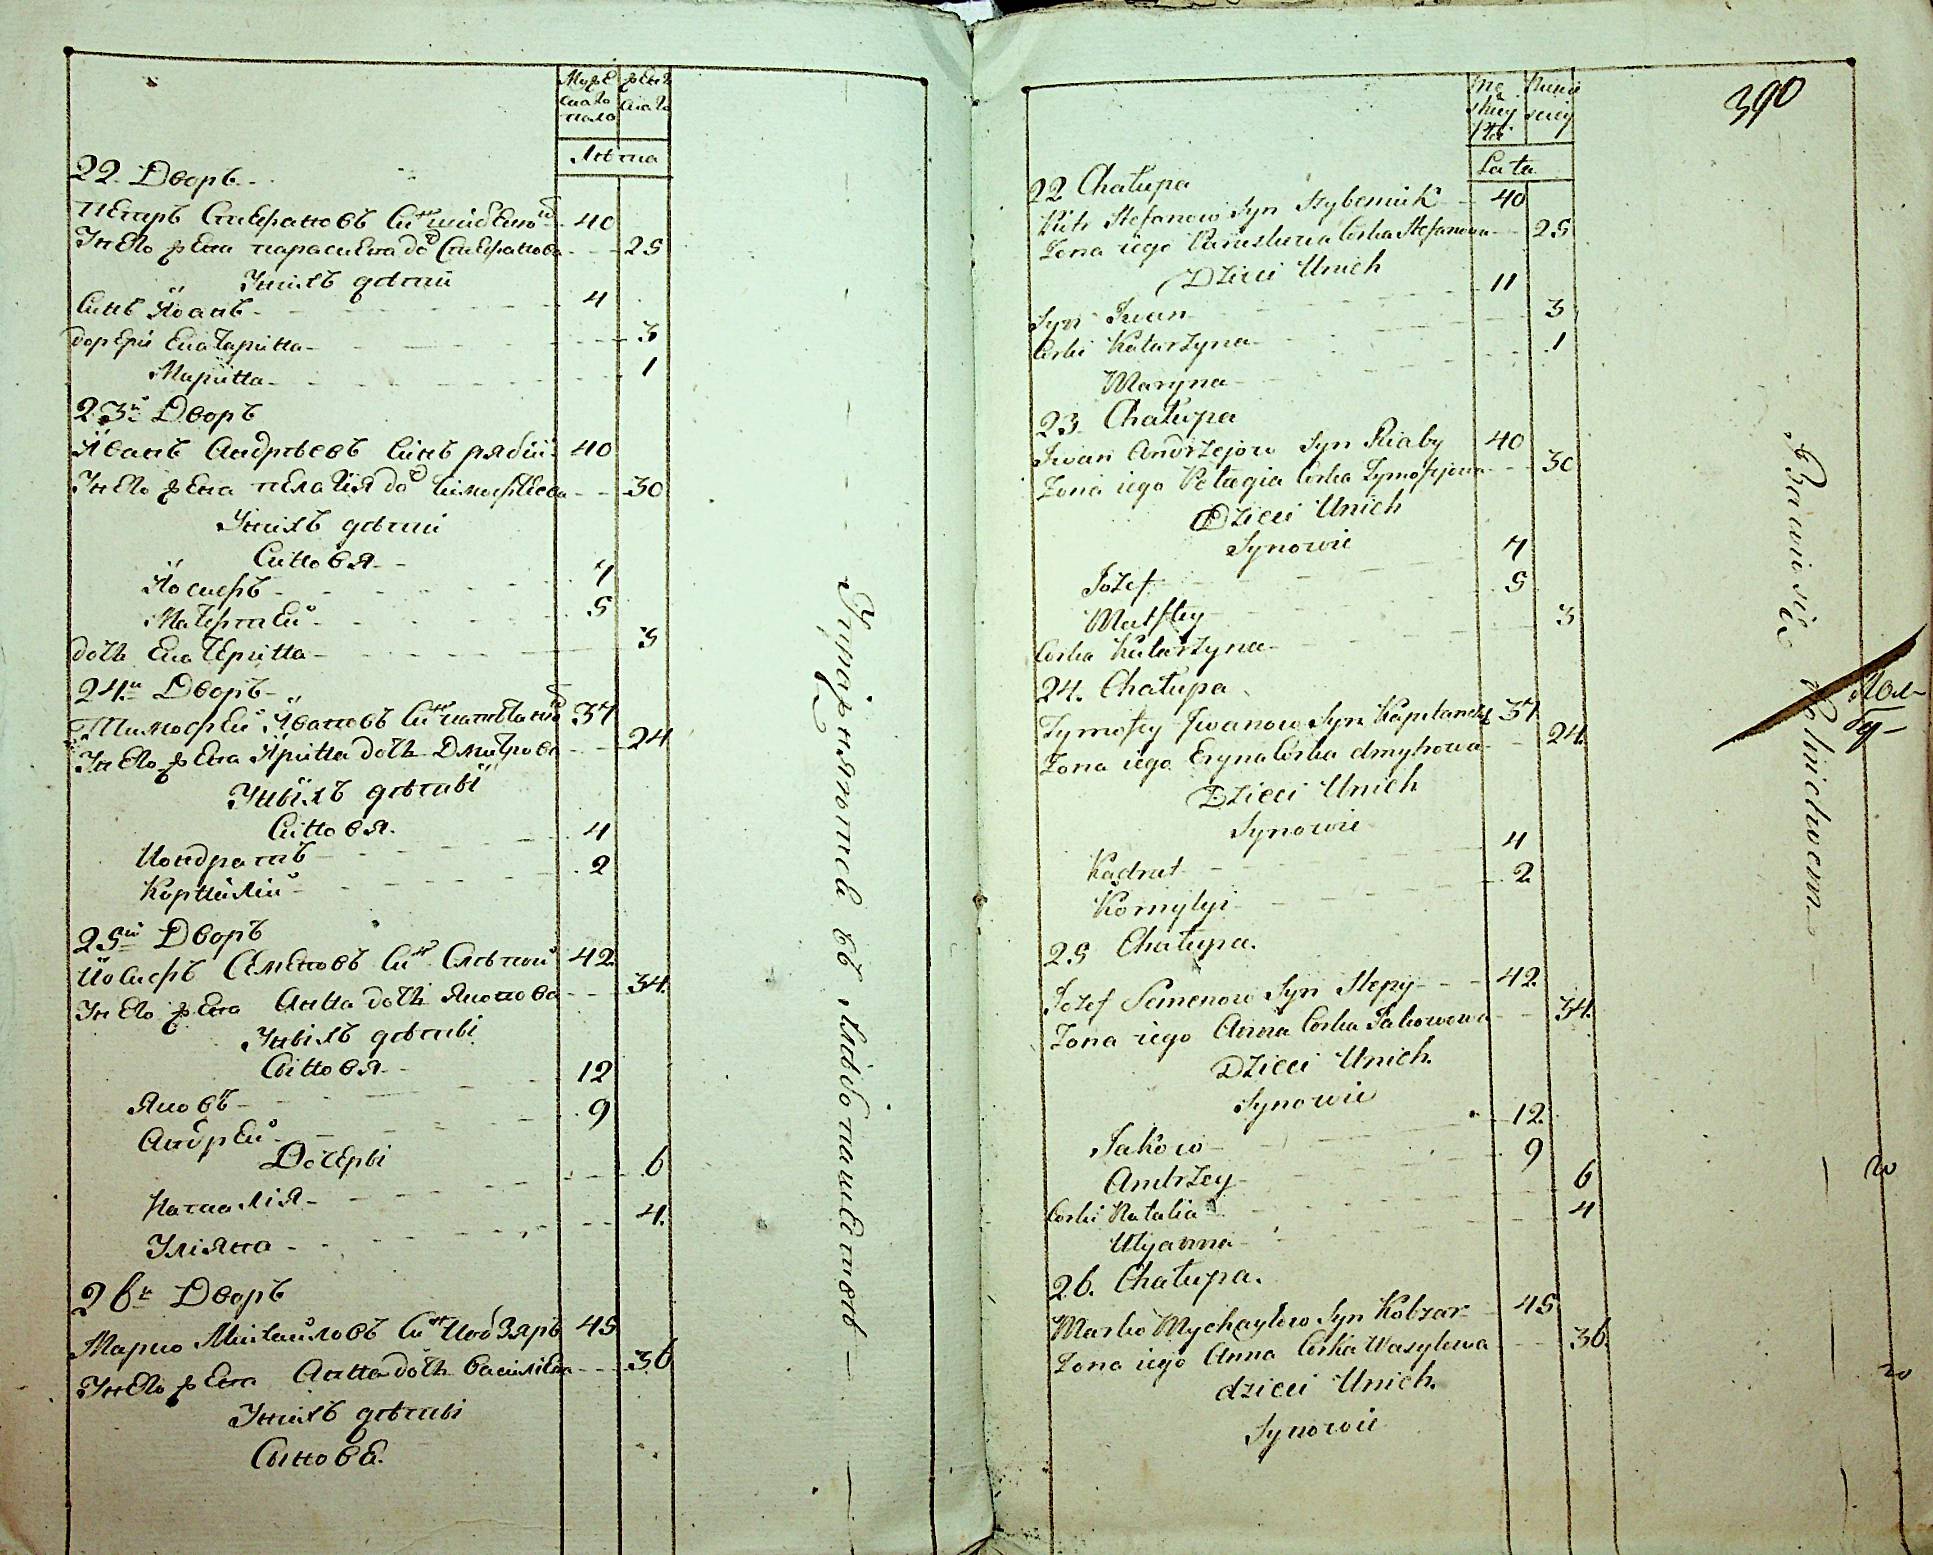 Муже
ска­го
полу
жен
скаго
Лѣта
22 Дворъ
Петръ Стефановъ Сиⁿ шибений 40
У него жена параскева доч Стефанова 25
У нихъ дѣти
Синъ Йоанъ 4
дочери Екатарина 3
Марина 1
23й Дворъ
Иванъ Андрѣевъ Синъ рябий 40
У него жена пелагія доч Тімофѣева 30
У нихъ дѣти
Синовя
Йосифъ 7
Матфтей 5
дочь Екатерина 3
24й Дворъ
Тимофей Ивановъ Синъ 37
У него жена Ярина дочь Дмитрова 24
У ніхъ дѣтві
Синовя
Кондратъ 4
Корнилій 2
25й Дворъ
Йосифъ Семеновъ Синъ Слѣпой 42
У него жена Анна дочь Якопова 34
У ніхъ дѣтві
Синовя
Яковъ 12
Андрей 9
Дочерві
Наталія 6
Уліяна 4
26й Дворъ
Марко Михайловъ Синъ Кобзаръ 45
У него жена Анна дочь Василіева 36
У нихъ дѣтві
Синове
Упражняются въ хлѣбопашествѣ
390
Mę
skiey
płci
Niewi
sciey
Lata
22 Chałupa
Piotr Stefanow Syn Szybeniuk 40
Zona iego Paraskewia Corka Stefanowa 25
Dzieci Unich
Syn Iwan 11
Corki Katarzyna 3
Maryna 1
23 Chałupa
Iwan Andrzejow Syn Riaby 40
Zona iego Pelagia Corka Tymofijowa 30
Dzieci Unich
Synowie
Jozef 7
Matftey 5
Corka Katarzyna 3
24. Chałupa
Tymofey Iwanow Syn Kapitansky 37
Zona iego Eryna Corka dmytrowa 24
Dzieci Unich
Synowie
Kadrat 4
Kornylyi 2
25 Chałupa.
Jozef Semenow Syn Slepy 42
Zona iego Anna Corka Jakowowa 34
Dzieci Unich
Synowie
Jakow 12
Andrzey 9
Corki Natalia 6
Ulyanna 4
26. Chałupa.
Marko Mychayłow Syn Kobzar 45
Zona iego Anna Corka Wasylewa 36
dzieci Unich.
Synowie
Bawio się Rolnictwem